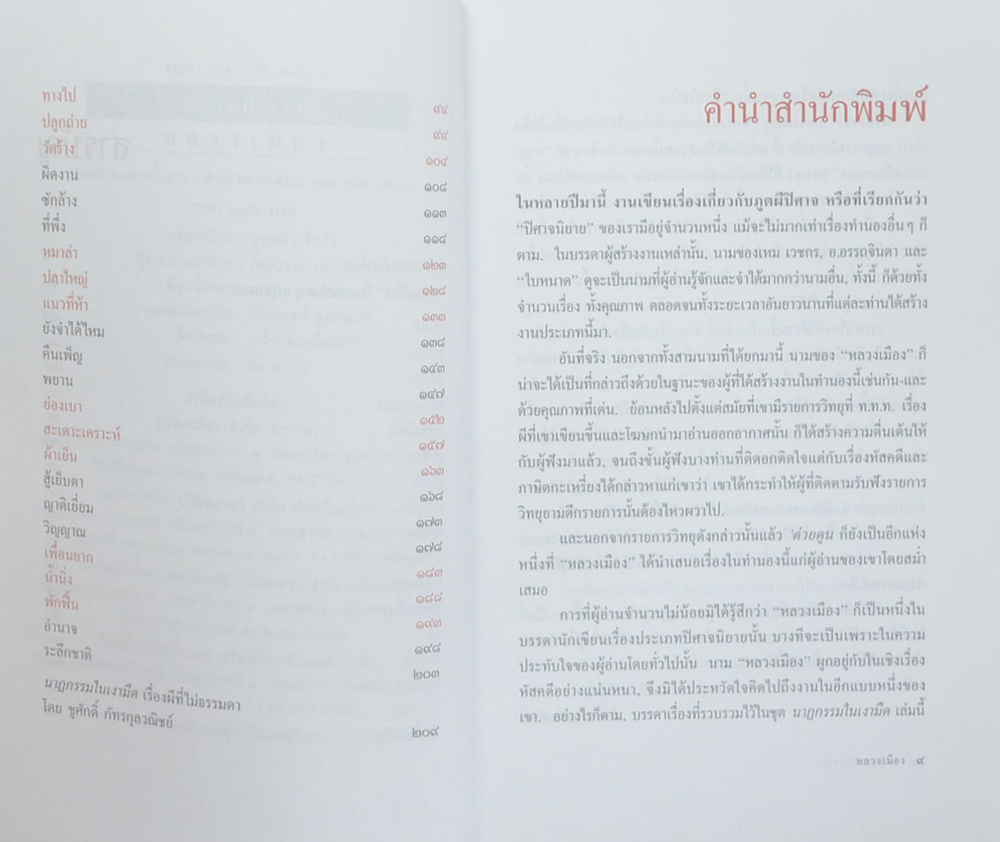 ทางไป ๙๔
ปลูกถ่าย ๙๙
วัดร้าง ๑๐๔
ผิดงาน ๑๐๘
ซักล้าง ๑๑๓
ที่พึ่ง ๑๑๘
หมาล่า ๑๒๓
ปลาใหญ่ ๑๒๘
แนวที่ห้า ๑๓๓
ยังจำได้ไหม ๑๓๘
คืนเพ็ญ ๑๔๓
พยาน ๑๔๗
ย่องเบา ๑๕๒
สะเดาะเคราะห์ ๑๕๗
ผ้าเย็น ๑๖๓
สู้เย็บตา ๑๖๘
ญาติเยี่ยม ๑๗๓
วิญญาณ ๑๗๘
เพื่อนยาก ๑๘๓
น้ำนิ่ง ๑๘๘
พักฟื้น ๑๙๓
อำนาจ ๑๙๘
ระลึกชาติ ๒๐๓
นาฏกรรมในเงามืด เรื่องผีที่ไม่ธรรมดา
โดย ชูศักดิ์ ภัทรกุลวณิชย์ ๒๐๙
คำนำสำนักพิมพ์
ในหลายปีมานี้ งานเขียนเรื่องเกี่ยวกับภูตผีปีศาจ หรือที่เรียกกันว่า
“ปีศาจนิยาย” ของเรามีอยู่จำนวนหนึ่ง แม้จะไม่มากเท่าเรื่องทำนองอื่นๆ ก็
ตาม. ในบรรดาผู้สร้างงานเหล่านั้น, นามของเหม เวชกร, อ.อรรถจินดา และ
“ใบหนาด” ดูจะเป็นนามที่ผู้อ่านรู้จักและจำได้มากกว่านามอื่น, ทั้งนี้ ก็ด้วยทั้ง
จำนวนเรื่อง ทั้งคุณภาพ ตลอดจนทั้งระยะเวลาอันยาวนานที่แต่ละท่านได้สร้าง
งานประเภทนี้มา.
อันที่จริง นอกจากทั้งสามนามที่ได้ยกมานี้ นามของ “หลวงเมือง” ก็
น่าจะได้เป็นที่กล่าวถึงด้วยในฐานะของผู้ที่ได้สร้างงานในทำนองนี้เช่นกัน-และ
ด้วยคุณภาพที่เด่น. ย้อนหลังไปตั้งแต่สมัยที่เขามีรายการวิทยุที่ ท.ท.ท. เรื่อง
ผีที่เขาเขียนขึ้นและโฆษกนำมาอ่านออกอากาศนั้น ก็ได้สร้างความตื่นเต้นให้
กับผู้ฟังมาแล้ว, จนถึงขั้นผู้ฟังบางท่านที่ติดอกติดใจแต่กับเรื่องหัสคดีและ
ภาษิตกะเหรี่ยงได้กล่าวหาแก่เขาว่า เขาได้กระทำให้ผู้ที่ติดตามรับฟังรายการ
วิทยุยามดึกรายการนั้นต้องไหวผวาไป.
และนอกจากรายการวิทยุดังกล่าวนั้นแล้ว ต่วยตูน ก็ยังเป็นอีกแห่ง
หนึ่งที่ “หลวงเมือง” ได้นำเสนอเรื่องในทำนองนี้แก่ผู้อ่านของเขาโดยสม่ำ
เสมอ
การที่ผู้อ่านจำนวนไม่น้อยมิได้รู้สึกว่า “หลวงเมือง” ก็เป็นหนึ่งใน
บรรดานักเขียนเรื่องประเภทปีศาจนิยายนั้น บางทีจะเป็นเพราะในความ
ประทับใจของผู้อ่านโดยทั่วไปนั้น นาม “หลวงเมือง” ผูกอยู่กับในเชิงเรื่อง
หัสคดีอย่างแน่นหนา, จึงมิได้ประหวัดใจคิดไปถึงงานในอีกแบบหนึ่งของ
เขา. อย่างไรก็ตาม, บรรดาเรื่องที่รวบรวมไว้ในชุด นาฏกรรมในเงามืด เล่มนี้
หลวงเมือง ๙